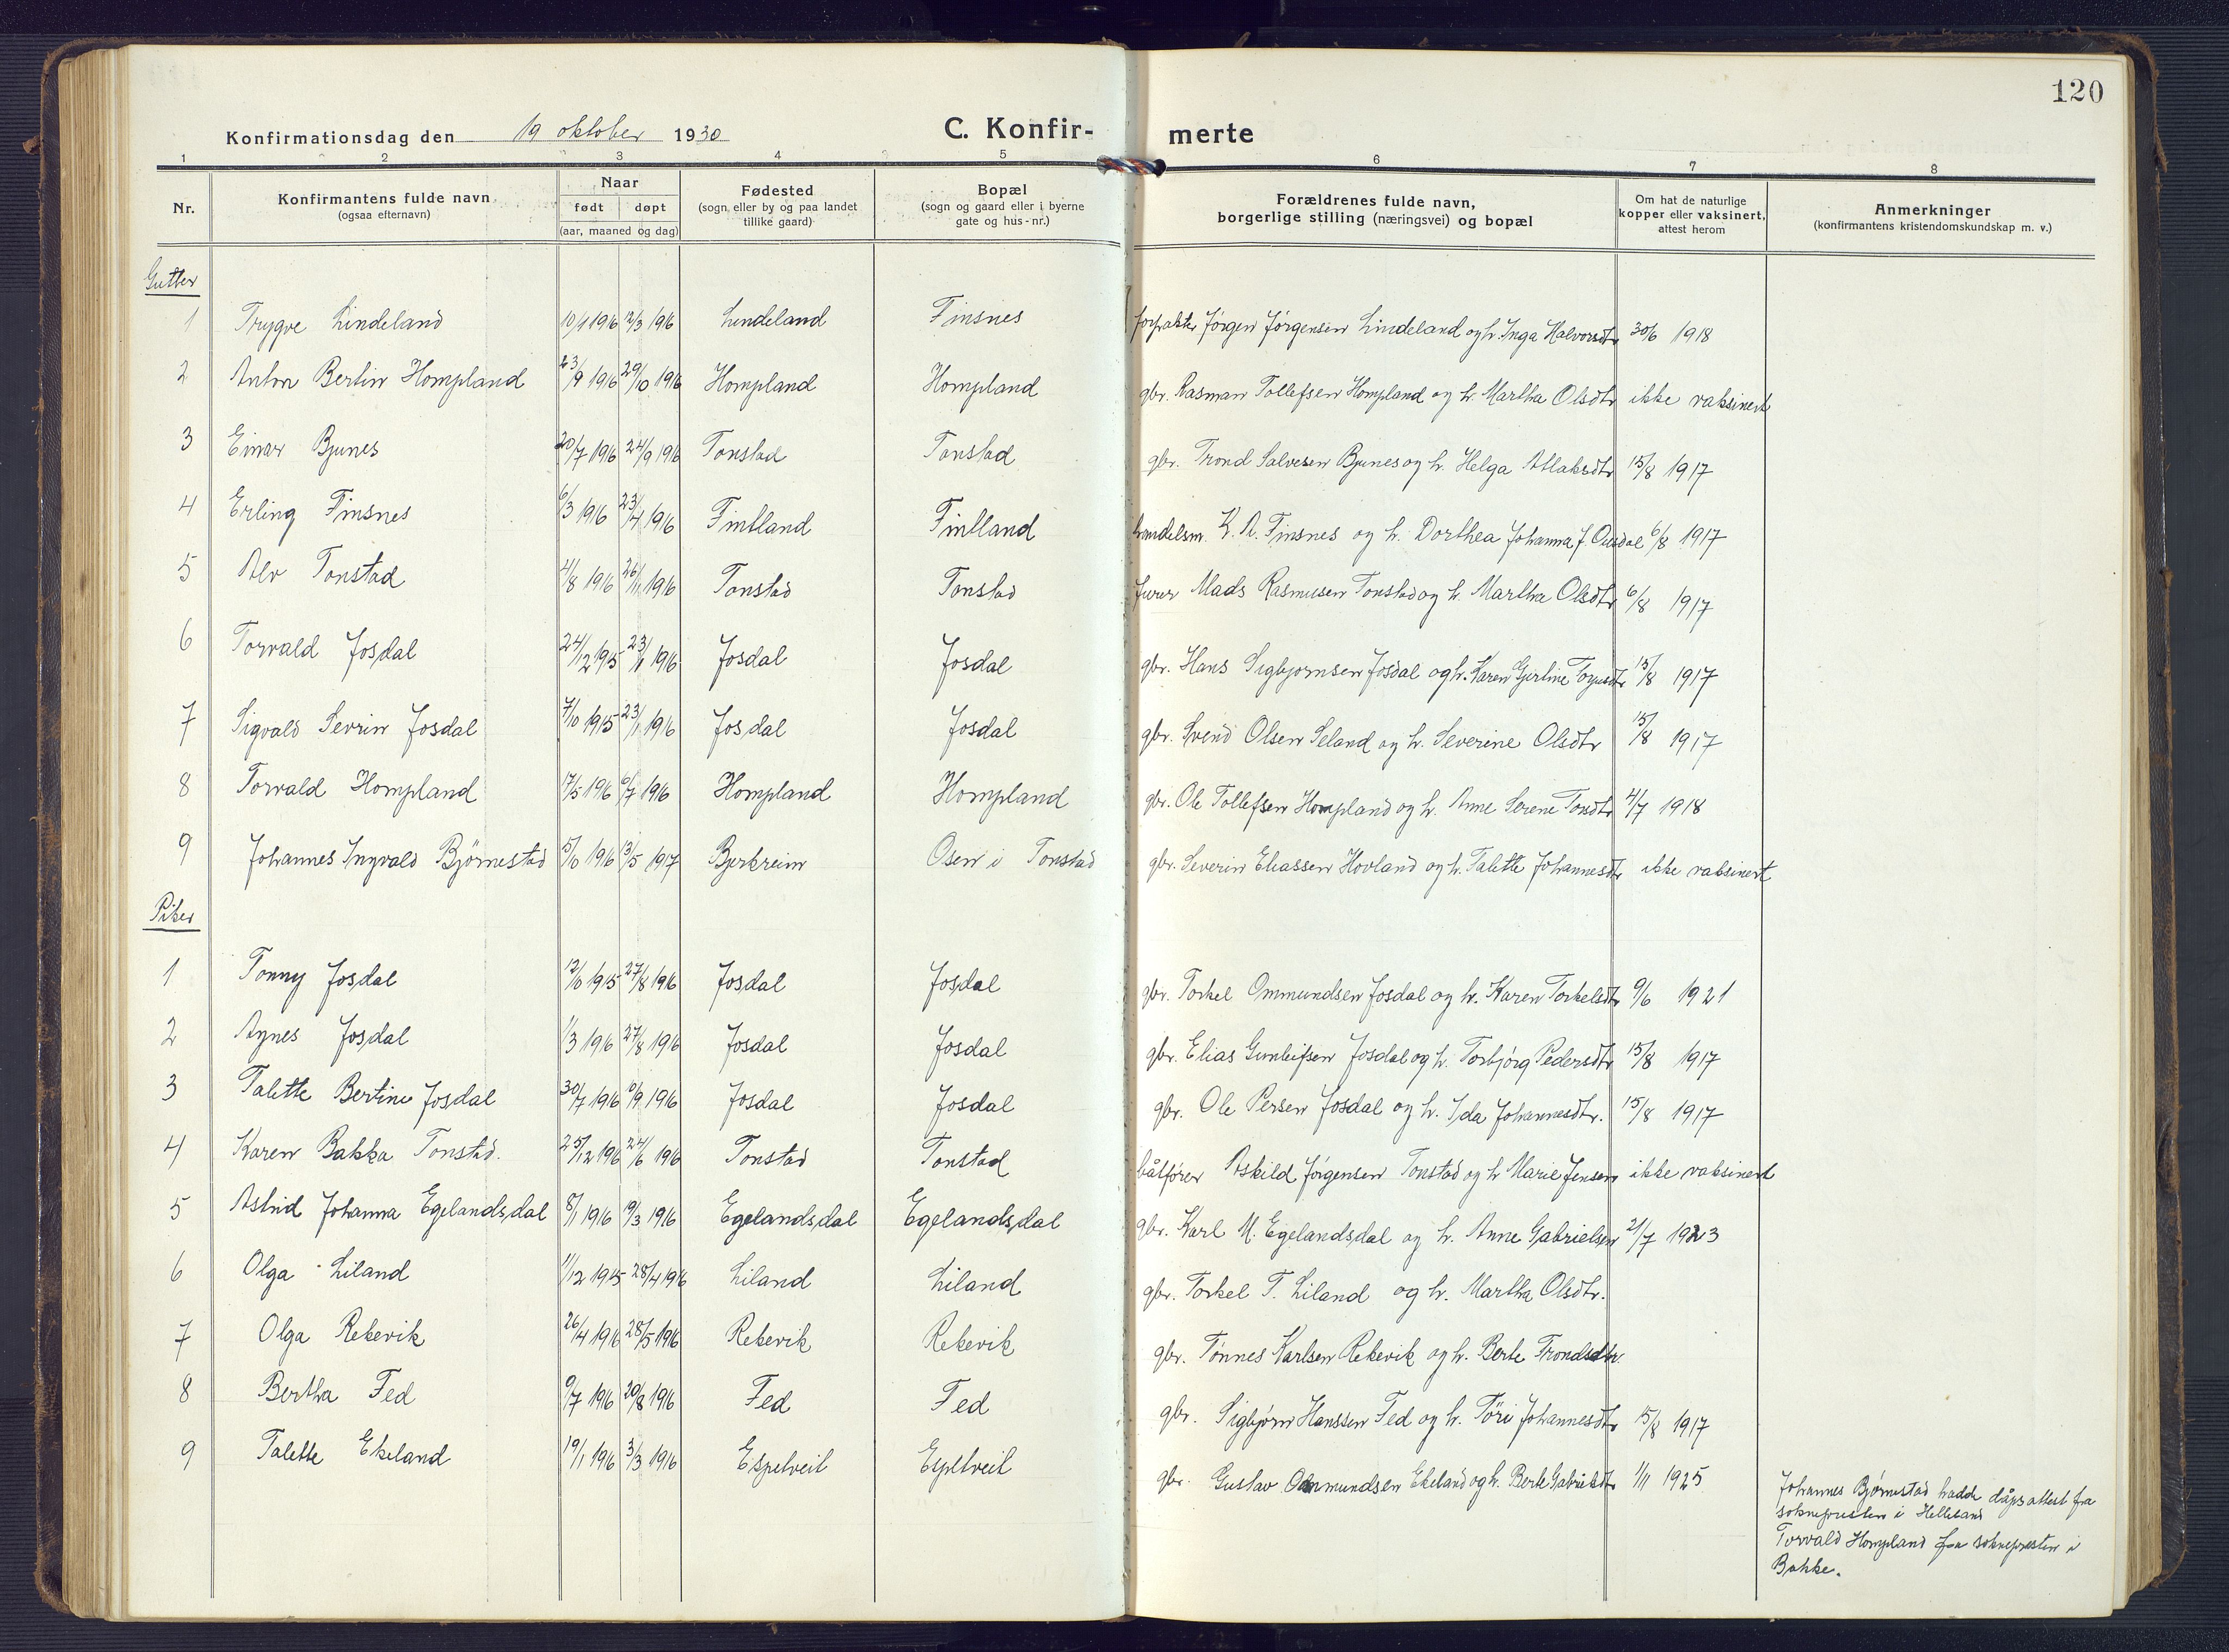 120
Konfirmationsdag den 19 oktober 1930
C. Konfir- merte
1 2 3 4 5 6 7 8
Nr.
Konfirmantens fulde navn
(ogsaa efternavn)
Naar
født døpt
(aar, maaned og dag)
Fødested
(sogn eller by og paa landet
tillike gaard)
Bopæl
(sogn og gaard eller i byerne
gate og hus-nr.)
Forældrenes fulde navn,
borgerlige stilling (næringsvei) og bopæl
Om hat de naturlige
kopper eller vaksinert,
attest herom
Anmerkninger
(konfirmantens kristendomskundskap m. v.)
Gutter
1 Trygve Lindeland 10/1 1916 12/3 1916 Lindeland Finsnes forpakter Jørgen Jørgensen Lindeland og h. Inga Halvorsdtr 30/6 1918
2 Anton Bertin Hompland 23/9 1916 29/10 1916 Hompland Hompland gbr. Rasman Tollefsen Hompland og h. Martha Olsdtr ikke vaksinert
3 Einar Bjunes 20/7 1916 24/9 1916 Tonstad Tonstad gbr. Trond Salvesen Bjunes og h. Helga Atlaksdtr 15/8 1917
4 Erling Finsnes 6/3 1916 23/4 1916 Fintland Fintland handelsm. K. A. Finsnes og h. Dorthea Johanna J. Ousdal 6/8 1917
5 Alv Tonstad 4/8 1916 26/11 1916 Tonstad Tonstad Mads Rasmusen Tonstad og h. Martha Olsdtr 6/8 1917
6 Torvald Josdal 24/12 1915 23/1 1916 Josdal Josdal gbr. Hans Sigbjornsen Josdal og h. Karen Gurine 15/8 1917
7 Sigvald Sevrin Josdal 7/10 1915 23/1 1916 Josdal Josdal gbr. Svend Olsen Seland og h. Severine Olsdtr 15/8 1917
8 Torvald Hompland 17/5 1916 6/7 1916 Hompland Hompland gbr. Ole Tollefsen Hompland og h. Anne Serene Tondtr 4/7 1918
9 Johannes Ingvald Bjørnestad 15/10 1916 13/5 1917 Bjerkreim Osen i Tonstad gbr. Severin Eliassen Hovland og h. Talette Johannesdtr ikke vaksinert
Piker
1 Tonny Josdal 12/10 1915 27/8 1916 Josdal Josdal gbr. Torkel Ommundsen Josdal og h. Karen Torkelsdtr 9/6 1921
2 Agnes Josdal 1/3 1916 27/8 1916 Josdal Josdal gbr. Elias Gunleifsen Josdal og h. Torbjørg Pedersdtr 15/8 1917
3 Talette Bertine Josdal 30/7 1916 10/9 1916 Josdal Josdal gbr. Ole Persen Josdal og h. Ida Johannesdtr. 15/8 1917
4 Karen Bakka Tonstad. 25/12 1916 24/6 1916 Tonstad Tonstad båtfører Askild Jørgensen Tonstad og h Marie Jensen ikke vaksinert
5 Astrid Johanna Egelandsdal 8/1 1916 19/3 1916 Egelandsdal Egelandsdal gbr. Karl M. Egelandsdal og h. Anne Gabrielsen 21/7 1923
6 Olga Liland 1/12 1915 28/4 1916 Liland Liland gbr. Torkel T. Liland og h. Martha Olsdtr.
7 Olga Rekevik 26/4 1916 28/5 1916 Rekevik Rekevik gbr. Tønnes Karlsen Rekevik og h. Berte Trondsdtr.
8 Bertha Fed 9/7 1916 20/8 1916 Fed Fed gbr. Sigbjørn Hanssen Fed og h. Tøri Johannesdtr 15/8 1917
9 Talette Ekeland 19/1 1916 3/3 1916 Espetveit Espetveit gbr. Gustav Ommundsen Ekeland og h. Berte Gabrielsdtr 1/11 1925
Johannes Bjørnestad hadde dåpsattest fra
sokneprestn i Helleland
Torvald Hompland fra soknepresten i
Bakke.